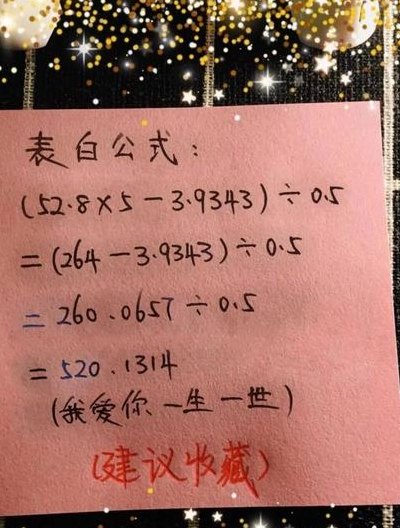 表白公式:
(52.8×5-3.9343)÷0.5
=(264-3.9343)÷0.5
=260.0657÷0.5
=520.1314
(我爱你一生一世)
(建议收藏)